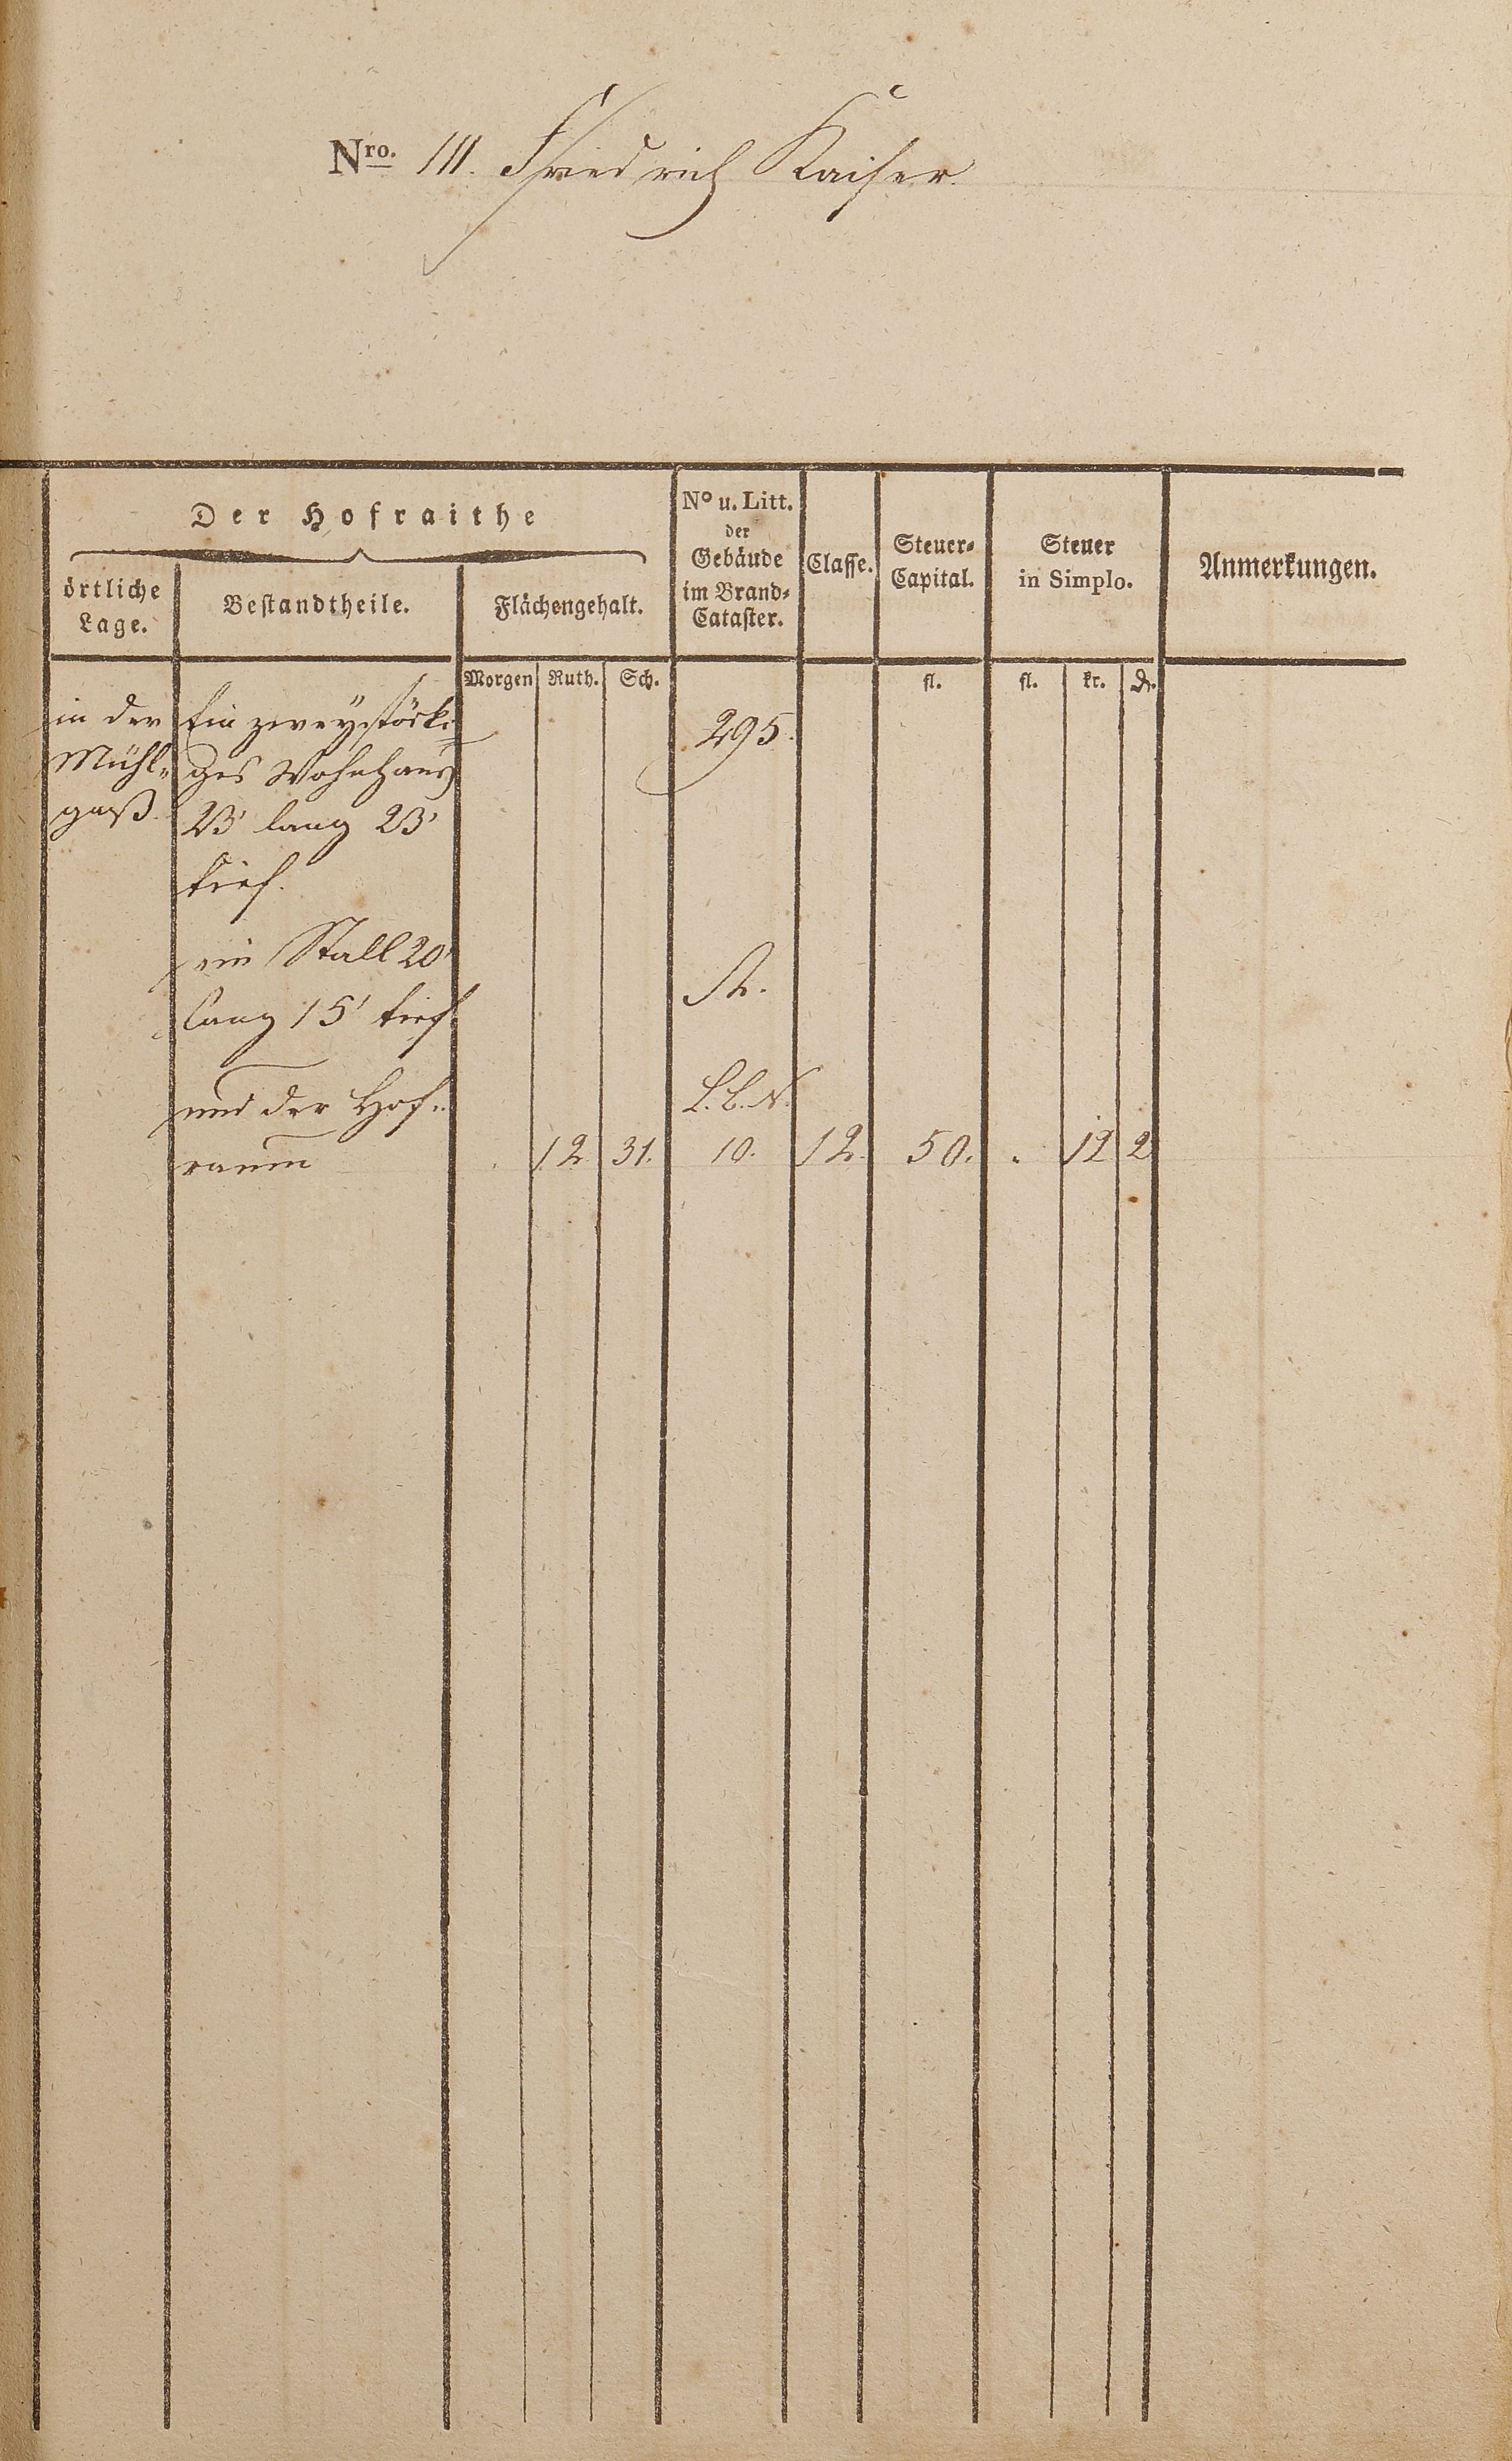 Nro. 111. Friedrich Kaiser.
Der Hofraithe
örtliche Lage.
Bestandtheile.
Flächengehalt.
No u. Litt. der Gebäude im Brand-Cataster.
Classe.
Steuer-Capital.
Steuer in Simplo.
Anmerkungen.
Morgen Ruth. Sch. fl. fl. kr. dr.
in der Ein zweystöcki- 295.
Mühl- ges Wohnhaus
gaß. 23' lang 23'
tief.
ein Stall 20'
lang 15' tief.
und der Hof-
raum . 12 31. 10. 12. 50. . 12 2